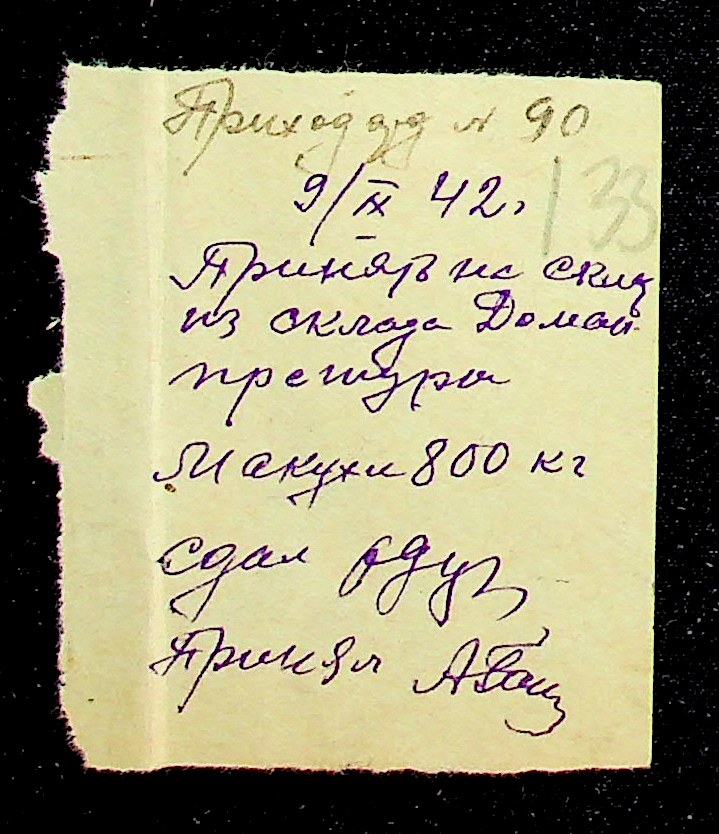 Приход орд № 90
133
9/IX 42г
Принять на склад
из склада Доман
претуры
Макухи 800 кг
сдал
Принял